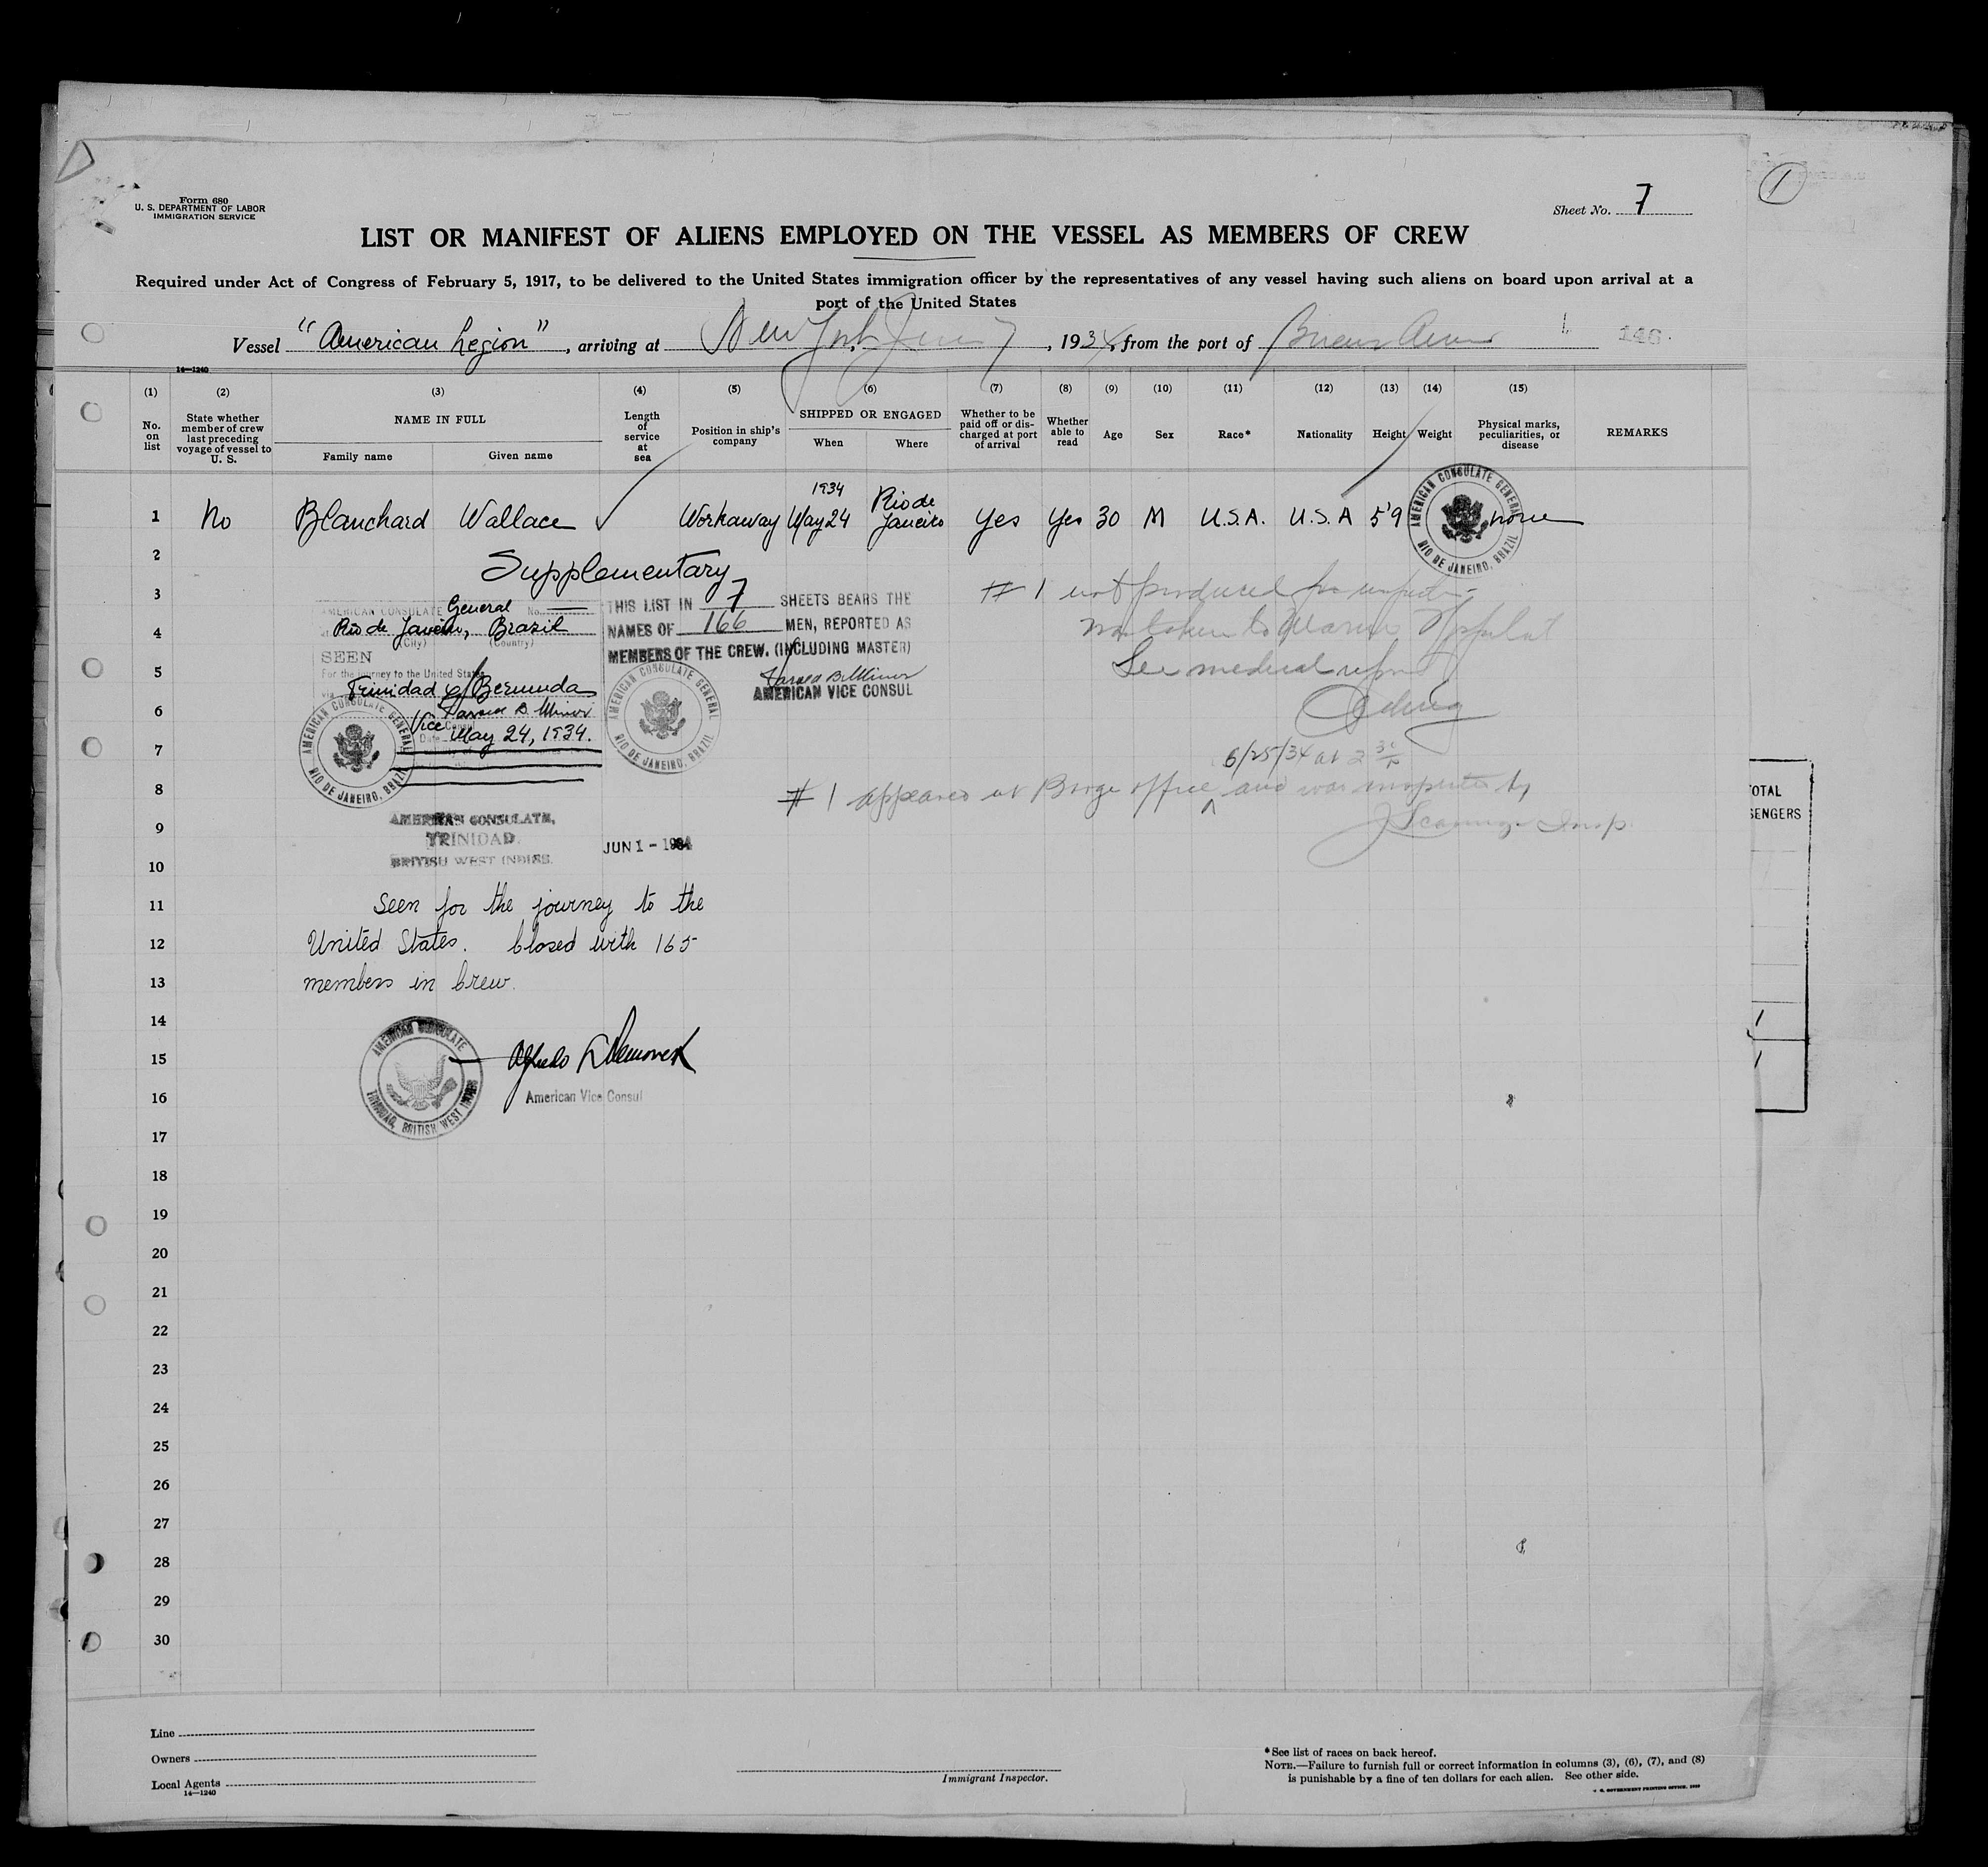 Form 680
U. S. DEPARTMENT OF LABOR
IMMIGRATION SERVICE
Sheet No. 7
1
LIST OR MANIFEST OF ALIENS EMPLOYED ON THE VESSEL AS MEMBERS OF CREW
Required under Act of Congress of February 5, 1917, to be delivered to the United States immigration officer by the representatives of any vessel having such aliens on board upon arrival at a
port of the United States
Vessel "American Legion", arriving at New York, June 7, 1934, from the port of Buenos Aires
146
14—1240
(1) (2) (3) (4) (5) (6) (7) (8) (9) (10) (11) (12) (13) (14) (15)
No. on list
State whether member of crew last preceding voyage of vessel to U. S.
NAME IN FULL
Family name
Given name
Length of service at sea
Position in ship's company
SHIPPED OR ENGAGED
When
Where
Whether to be paid off or discharged at port of arrival
Whether able to read
Age
Sex
Race*
Nationality
Height
Weight
Physical marks, peculiarities, or disease
REMARKS
1 No Blanchard Wallace Workaway 1934 May 24 Rio de Janeiro Yes Yes 30 M U.S.A. U.S.A 5'9 none
AMERICAN CONSULATE GENERAL RIO DE JANEIRO, BRAZIL
2
Supplementary
3
AMERICAN CONSULATE General No.
THIS LIST IN 7 SHEETS BEARS THE
# 1 not produced for
4
Rio de Janeiro, Brazil
(City) (Country)
NAMES OF 166 MEN, REPORTED AS
taken to Marine Hospital
SEEN
MEMBERS OF THE CREW. (INCLUDING MASTER)
5
For the journey to the United States
via Trinidad & Bermuda
Harold B. Minor
AMERICAN VICE CONSUL
See medical report
6
Harold B. Minor
Vice Consul
Date May 24, 1934.
AMERICAN CONSULATE GENERAL RIO DE JANEIRO, BRAZIL
AMERICAN CONSULATE GENERAL RIO DE JANEIRO, BRAZIL
7
6/25/34 at 2 30
8
# 1 appeared at Barge office and was inspected by
Insp.
TOTAL
SENGERS
9
AMERICAN CONSULATE,
TRINIDAD.
BRITISH WEST INDIES.
JUN 1 - 1934
10
11
Seen for the journey to the
12
United States. Closed with 165
13
members in Crew.
14
15
Alfredo
American Vice Consul
AMERICAN CONSULATE TRINIDAD, BRITISH WEST INDIES
16
17
18
19
20
21
22
23
24
25
26
27
28
29
30
Line
Owners
Local Agents
14—1240
Immigrant Inspector.
*See list of races on back hereof.
NOTE.—Failure to furnish full or correct information in columns (3), (6), (7), and (8)
is punishable by a fine of ten dollars for each alien. See other side.
U. S. GOVERNMENT PRINTING OFFICE